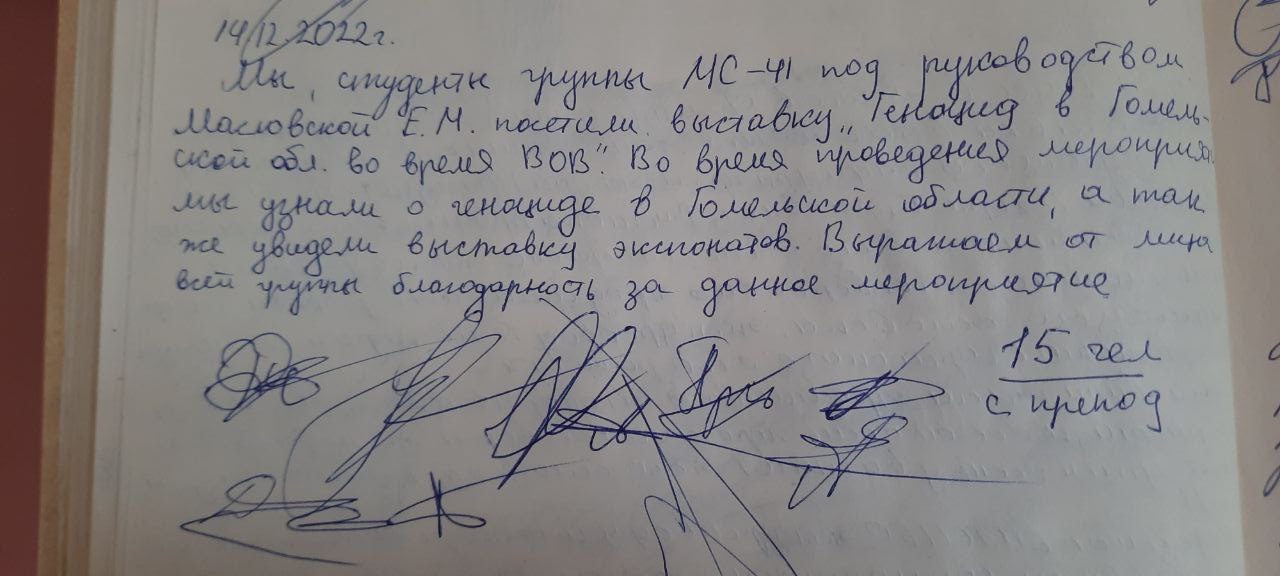 14/12.2022г.
Мы, студенты группы МС-41 под руководством
Масловской Е.М. посетили выставку „Геноцид в Гомель-
ской обл. во время ВОВ". Во время проведения мероприя
мы узнали о геноциде в Гомельской области, а так
же увидели выставку экспонатов. Выражаем от лица
всей группы благодарность за данное мероприятие
15 чел
с препод